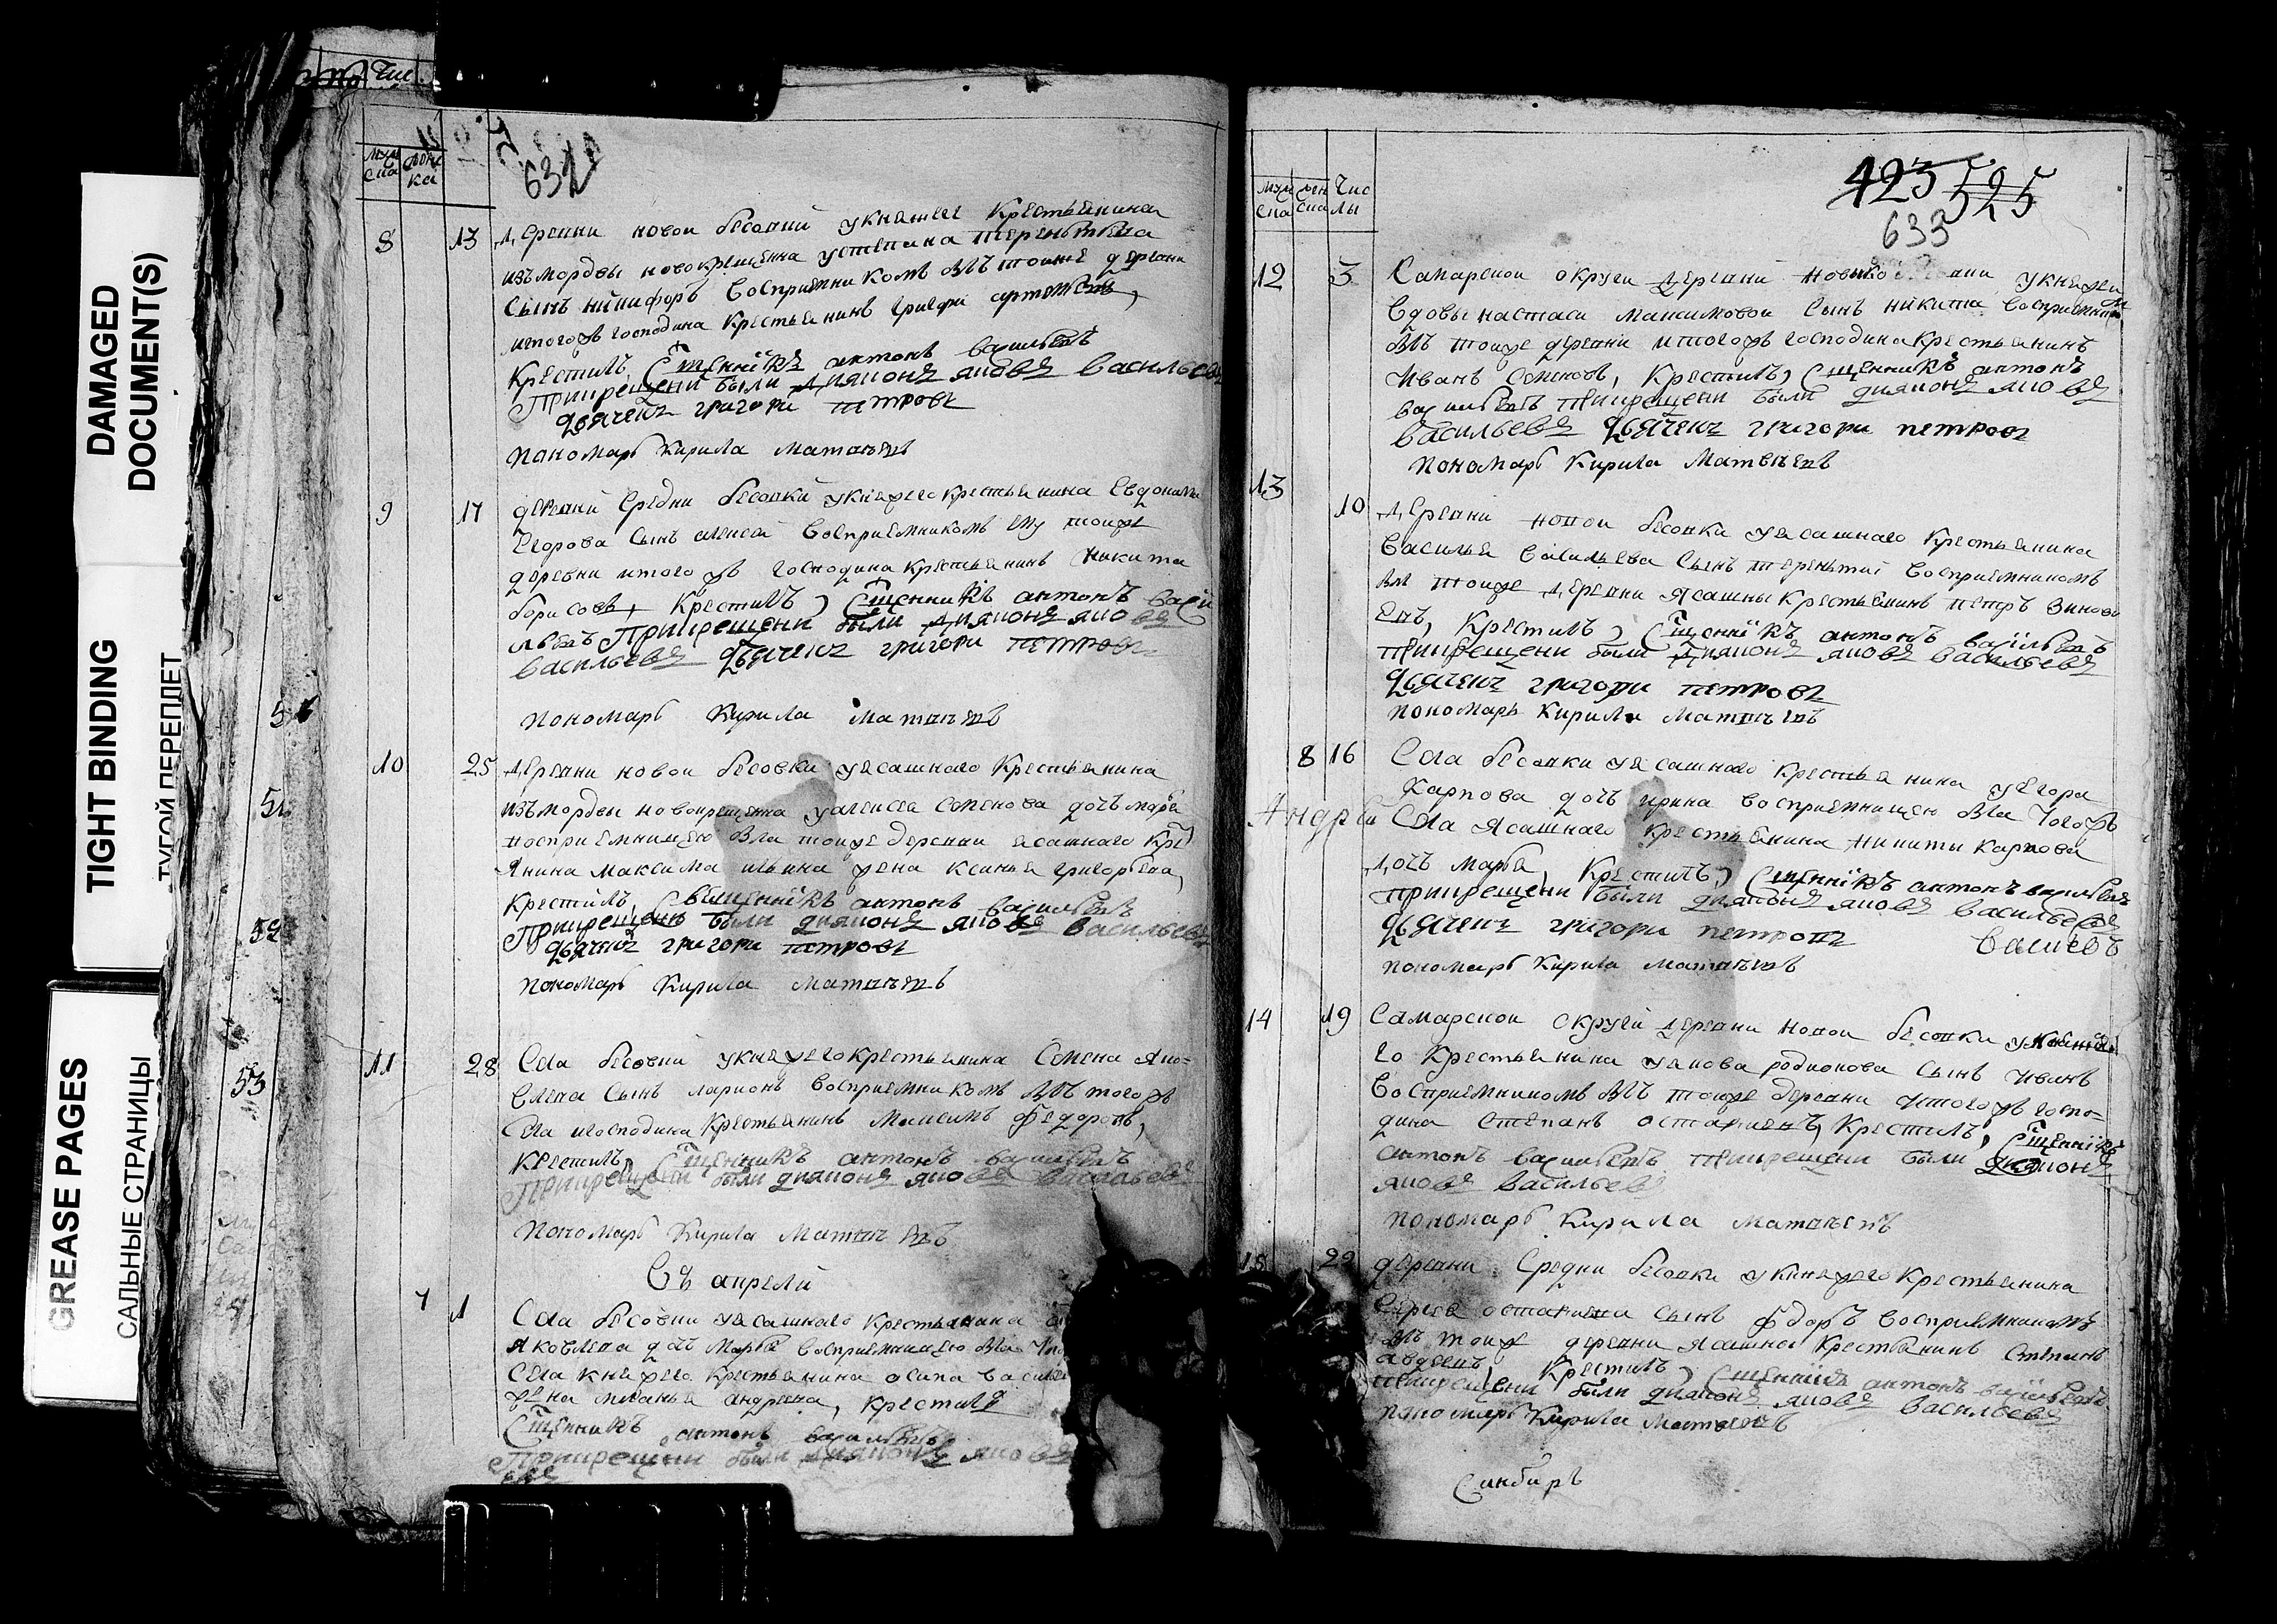 DAMAGED
DOCUMENT(S)
TIGHT BINDING
ТУГОЙ ПЕРЕПЛЕТ
GREASE PAGES
САЛЬНЫЕ СТРАНИЦЫ
632
8 13 Деревни новой бесовки укняжего Крестьянина
изъ мордвы новокрещенна устепана терентьева
Сынъ никифоръ Восприемникомъ тоиже деревни
итогожъ господина Крестьянинъ григори
Крестилъ Сщенникъ антонъ васильевъ
Прикрещени были дияконъ яковъ васильевъ
дьячекъ григори петровъ
пономарь Кирила Матвѣевъ
9 17 деревни Средни бесовки укняжего крестьянина Евдокима
Егорова Сынъ алексей Восприемникомъ ему тоиже
деревни итогожъ господина Крестьянинъ никита
борисовъ, Крестилъ, Сщенникъ антонъ васи
льевъ Прикрещени были дияконъ яковъ
васильевъ дьячекъ григори петровъ
пономарь Кирила Матвѣевъ
10 25 деревни новой бесовки уясашнаго Крестьянина
изъ мордвы новокрещенна уалексея Семенова дочь марфа
восприемницею тоиже деревни ясашнаго Кресть
янина Максима ильина жена Ксинья григорьева,
Крестилъ, Священникъ антонъ васильевъ
Прикрещени были дияконъ яковъ васильевъ
дьячекъ григори петровъ
пономарь Кирила Матвѣевъ
11 28 Села бесовки укняжего крестьянина Семена Яко=
влева Сынъ ларионъ восприемникомъ тогожъ
Села игосподина Крестьянинъ Максимъ Федоровъ,
Крестилъ, Сщенникъ антонъ васильевъ
Прикрещени были дияконъ яковъ васильевъ
пономарь Кирила Матвѣевъ
Въ апрели
7 1 Села бесовки уясашнаго крестьянина
Яковлева дочь Марфа восприемницею
Села княжего Крестьянина осипа
жена андреева, крестилъ
Сщенникъ антонъ васильевъ
Прикрещени были дияконъ яковъ
423 525
633
12 3 Самарской округи деревни новой укняжей
вдовы настаси Максимовой Сынъ никита восприемникомъ
тоиже деревни итогожъ господина крестьянинъ
Иванъ Семеновъ, Крестилъ, Сщенникъ антонъ
васильевъ Прикрещени были дияконъ яковъ
васильевъ дьячекъ григори петровъ
пономарь Кирила Матвѣевъ
13 10 деревни новой бесовки уясашнаго Крестьянина
Василья Васильева Сынъ терентей восприемникомъ
тоиже деревни Ясашны Крестьянинъ петръ Зинове
евъ, Крестилъ, Сщенникъ антонъ васильевъ
прикрещени были дияконъ яковъ васильевъ
дьячекъ григори петровъ
пономарь Кирила Матвѣевъ
8 16 Села бесовки уясашнаго крестьянина уегора
Карпова дочь ирина восприемницею тогожъ
Села Ясашнаго крестьянина Никиты Карпова
дочь марфа, Крестилъ, Сщенникъ антонъ васильевъ
прикрещени были дияконъ яковъ васильевъ
дьячекъ григори петровъ
пономарь Кирила Матвѣевъ
14 19 Самарской округи деревни новой бесовки укняже
го Крестьянина уякова родионова Сынъ Иванъ
восприемникомъ тоиже деревни итогожъ госпо=
дина Степанъ Крестилъ, Сщенникъ
антонъ васильевъ прикрещени были дияконъ
яковъ васильевъ
пономарь Кирила Матвѣевъ
15 29 деревни Средни бесовки укняжего Крестьянина
Сынъ Фдоръ восприемникомъ
тоиже деревни Ясашной Крестьянинъ Степанъ
авдеевъ, Крестилъ, Сщенникъ антонъ васильевъ
прикрещени были дияконъ яковъ васильевъ
пономарь Кирила Матвѣевъ
Синбиръ